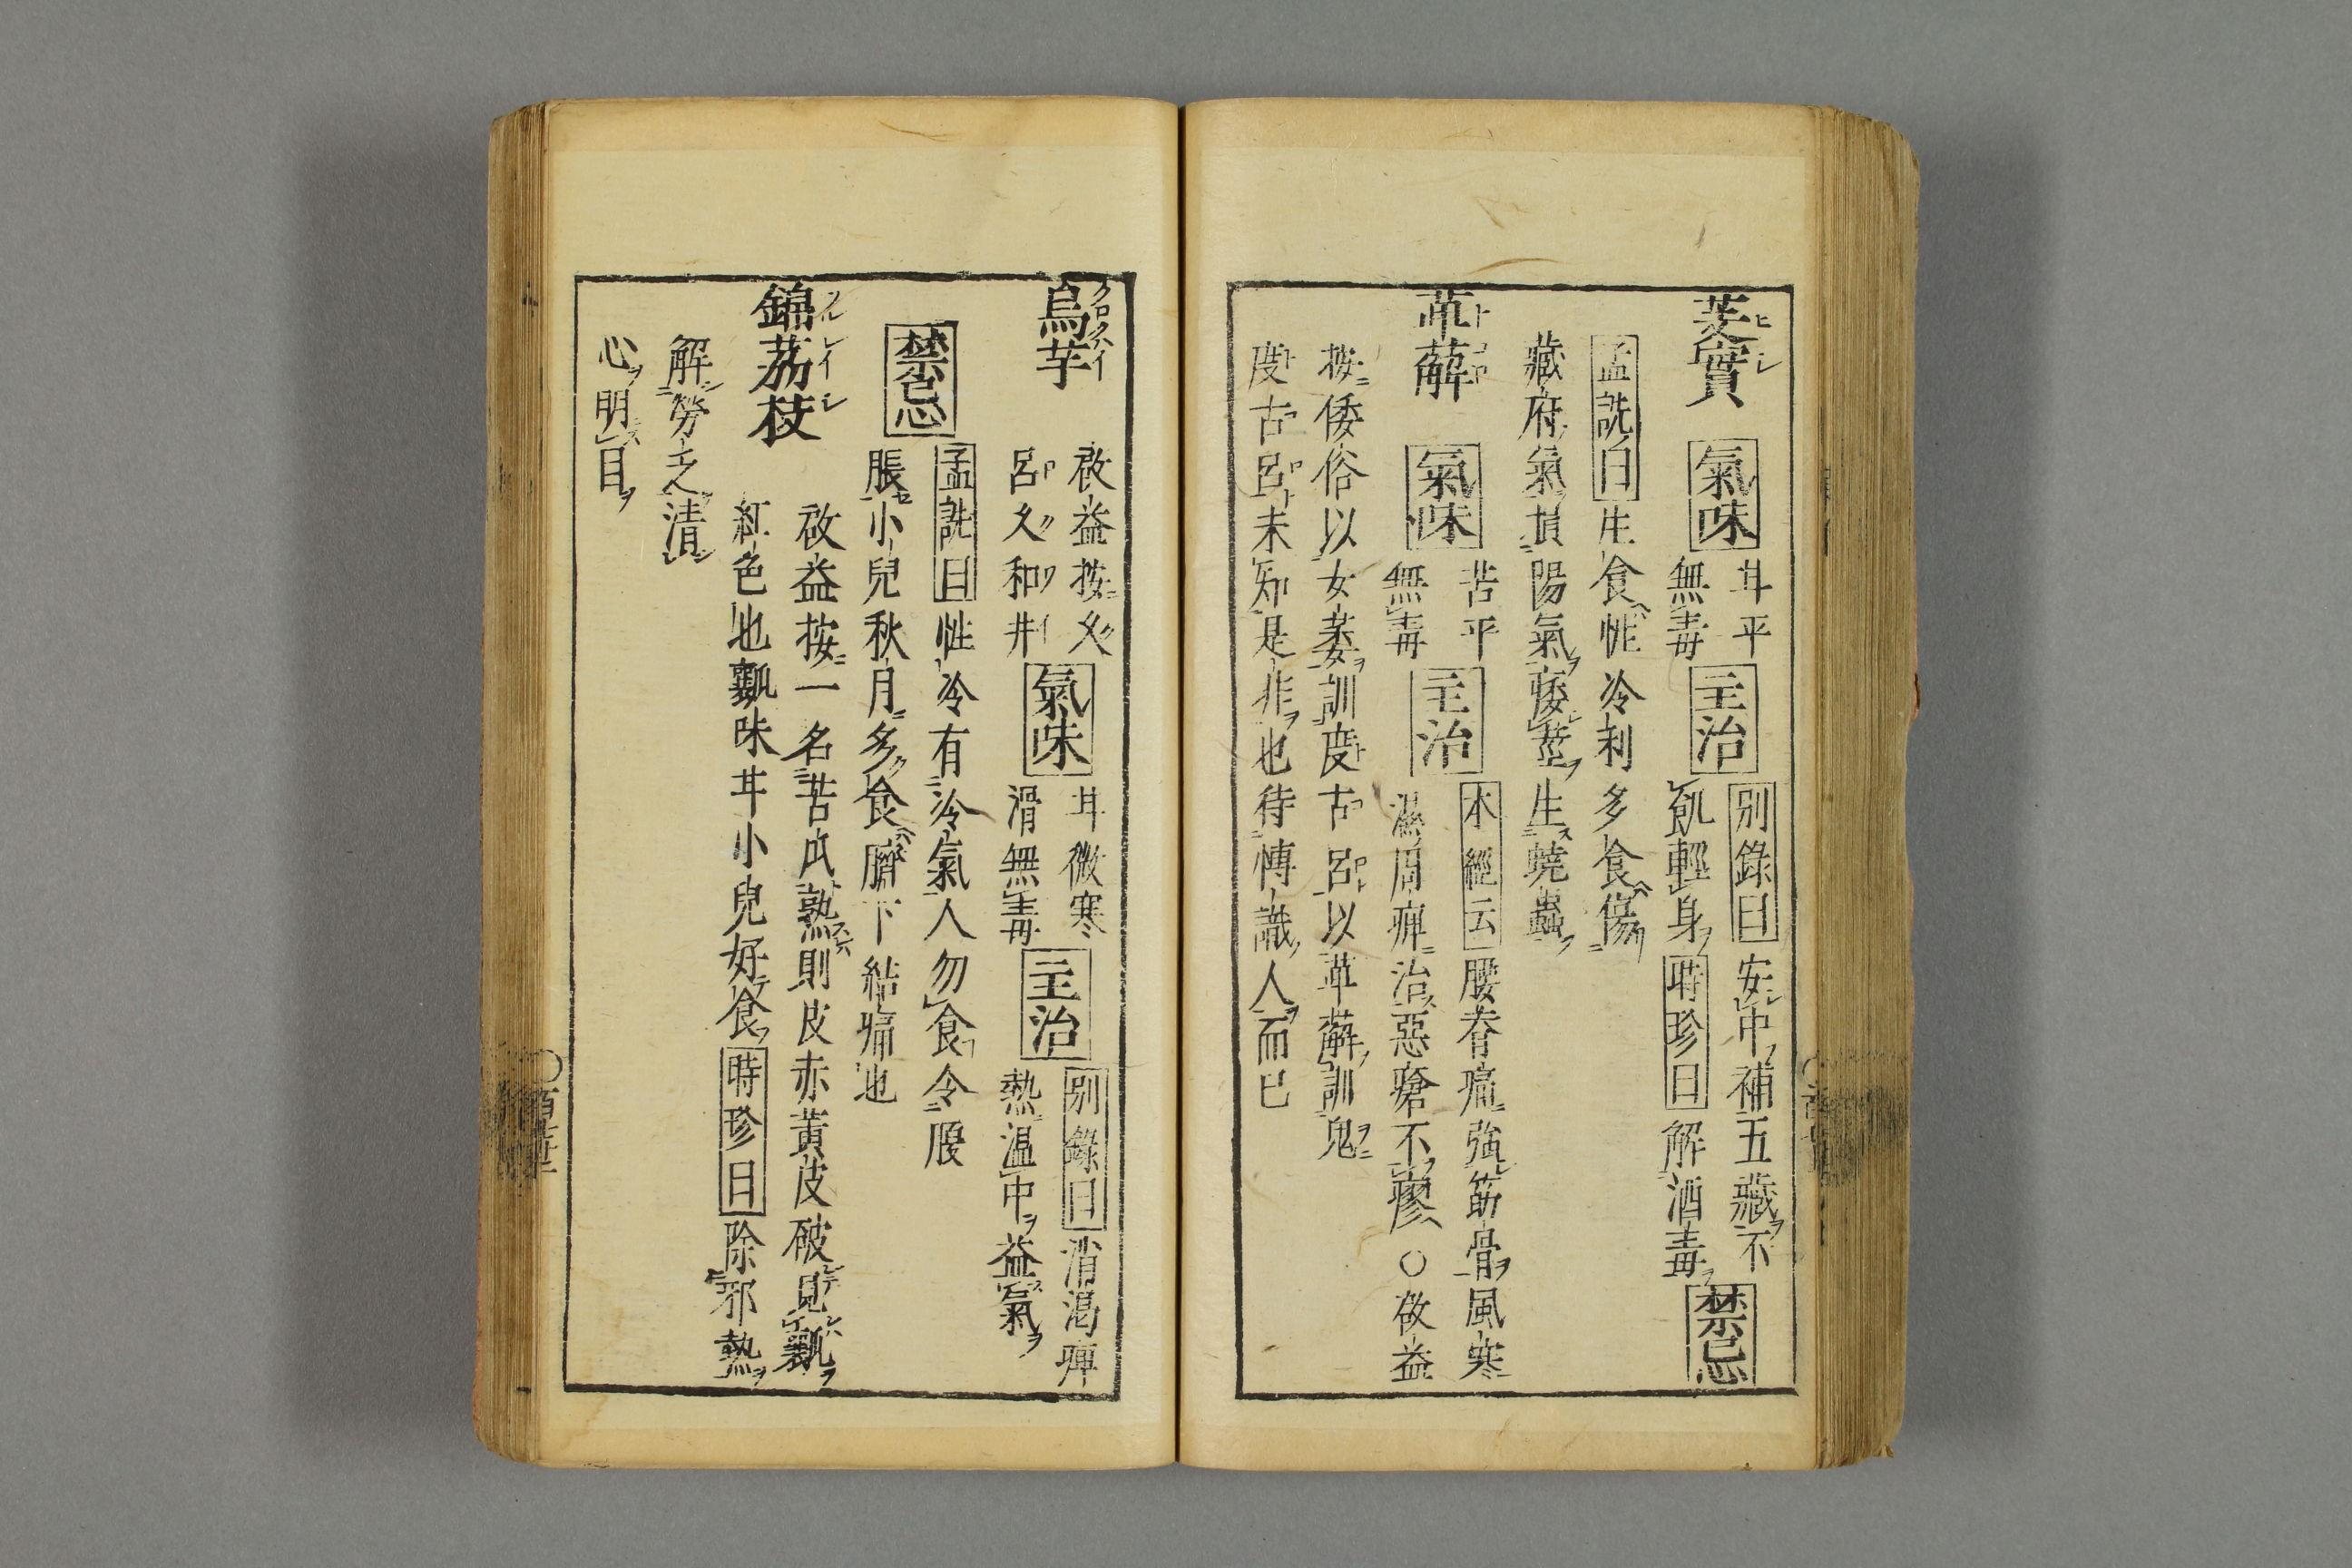 菱實 氣味 甘平無毒 主治 別錄曰 安中補五藏不
飢輕身 時珍曰 解酒毒 禁忌
孟詵曰 生食性冷利多食傷
藏府氣損陽氣痿莖生蟯蟲
萆薢 氣味 苦平無毒 主治 本經云 腰脊痛強筋骨風寒
濕周痹治惡瘡不瘳○啟益
按倭俗以女萎訓度古呂以萆薢訓鬼
度古呂未知是非也待博識人而已
烏芋 啟益按久
呂久和井 氣味 甘微寒
滑無毒 主治 別錄曰 消渴痺
熱溫中益氣
禁忌 孟詵曰 性冷有冷氣人勿食令腹
脹小兒秋月多食臍下結痛也
錦荔枝 啟益按一名苦瓜熟則皮赤黃皮破見瓤
紅色也瓤味甘小兒好食 時珍曰 除邪熱
解勞乏清
心明目